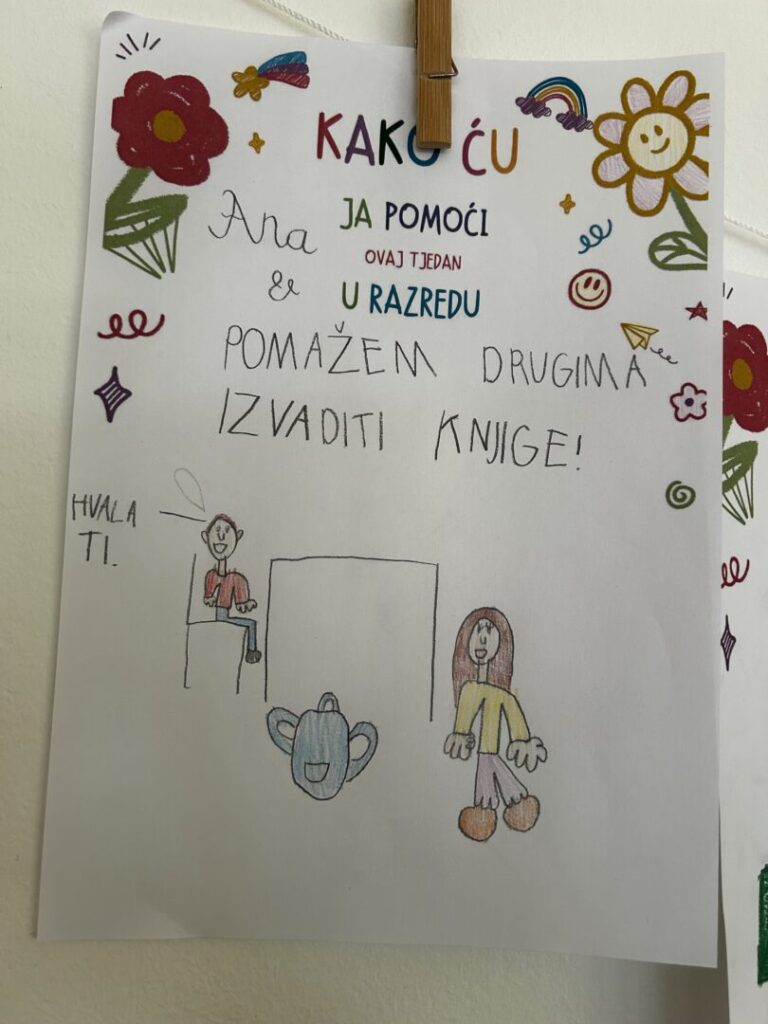 KAKO ĆU
JA POMOĆI
OVAJ TJEDAN
U RAZREDU
Ana
&
POMAŽEM DRUGIMA
IZVADITI KNJIGE!
HVALA
TI.